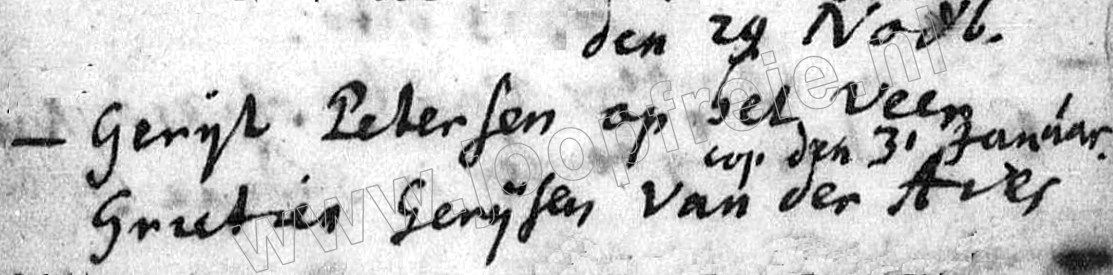 den 29 Novb.
– Gerryt Petersen op het Veen
cop. den 31 Januar.
Grietien Geryssen van der Aves
www.joopfroje.nl